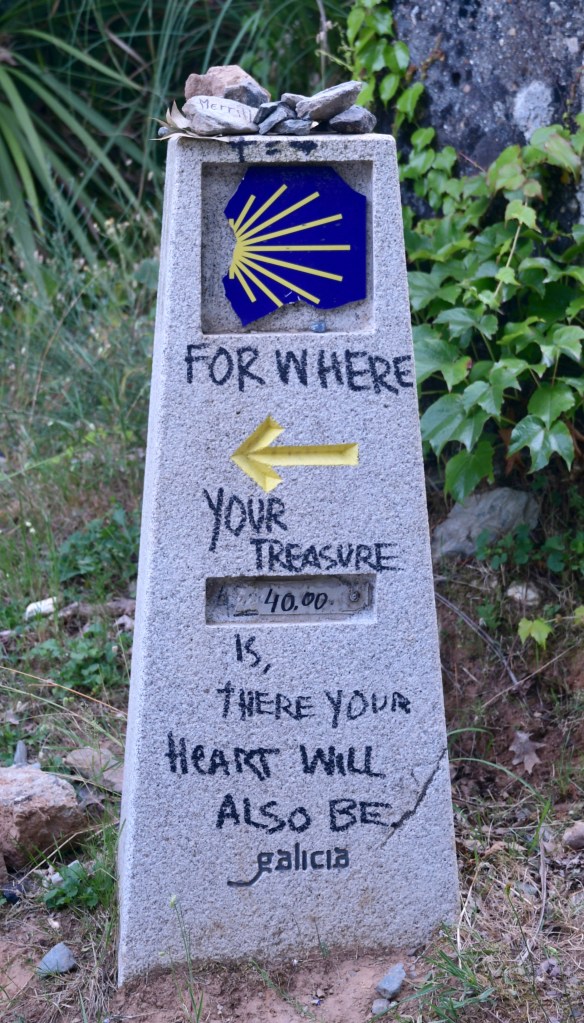 Merrill
FOR WHERE
YOUR
TREASURE
40.00
IS,
THERE YOUR
HEART WILL
ALSO BE
galicia